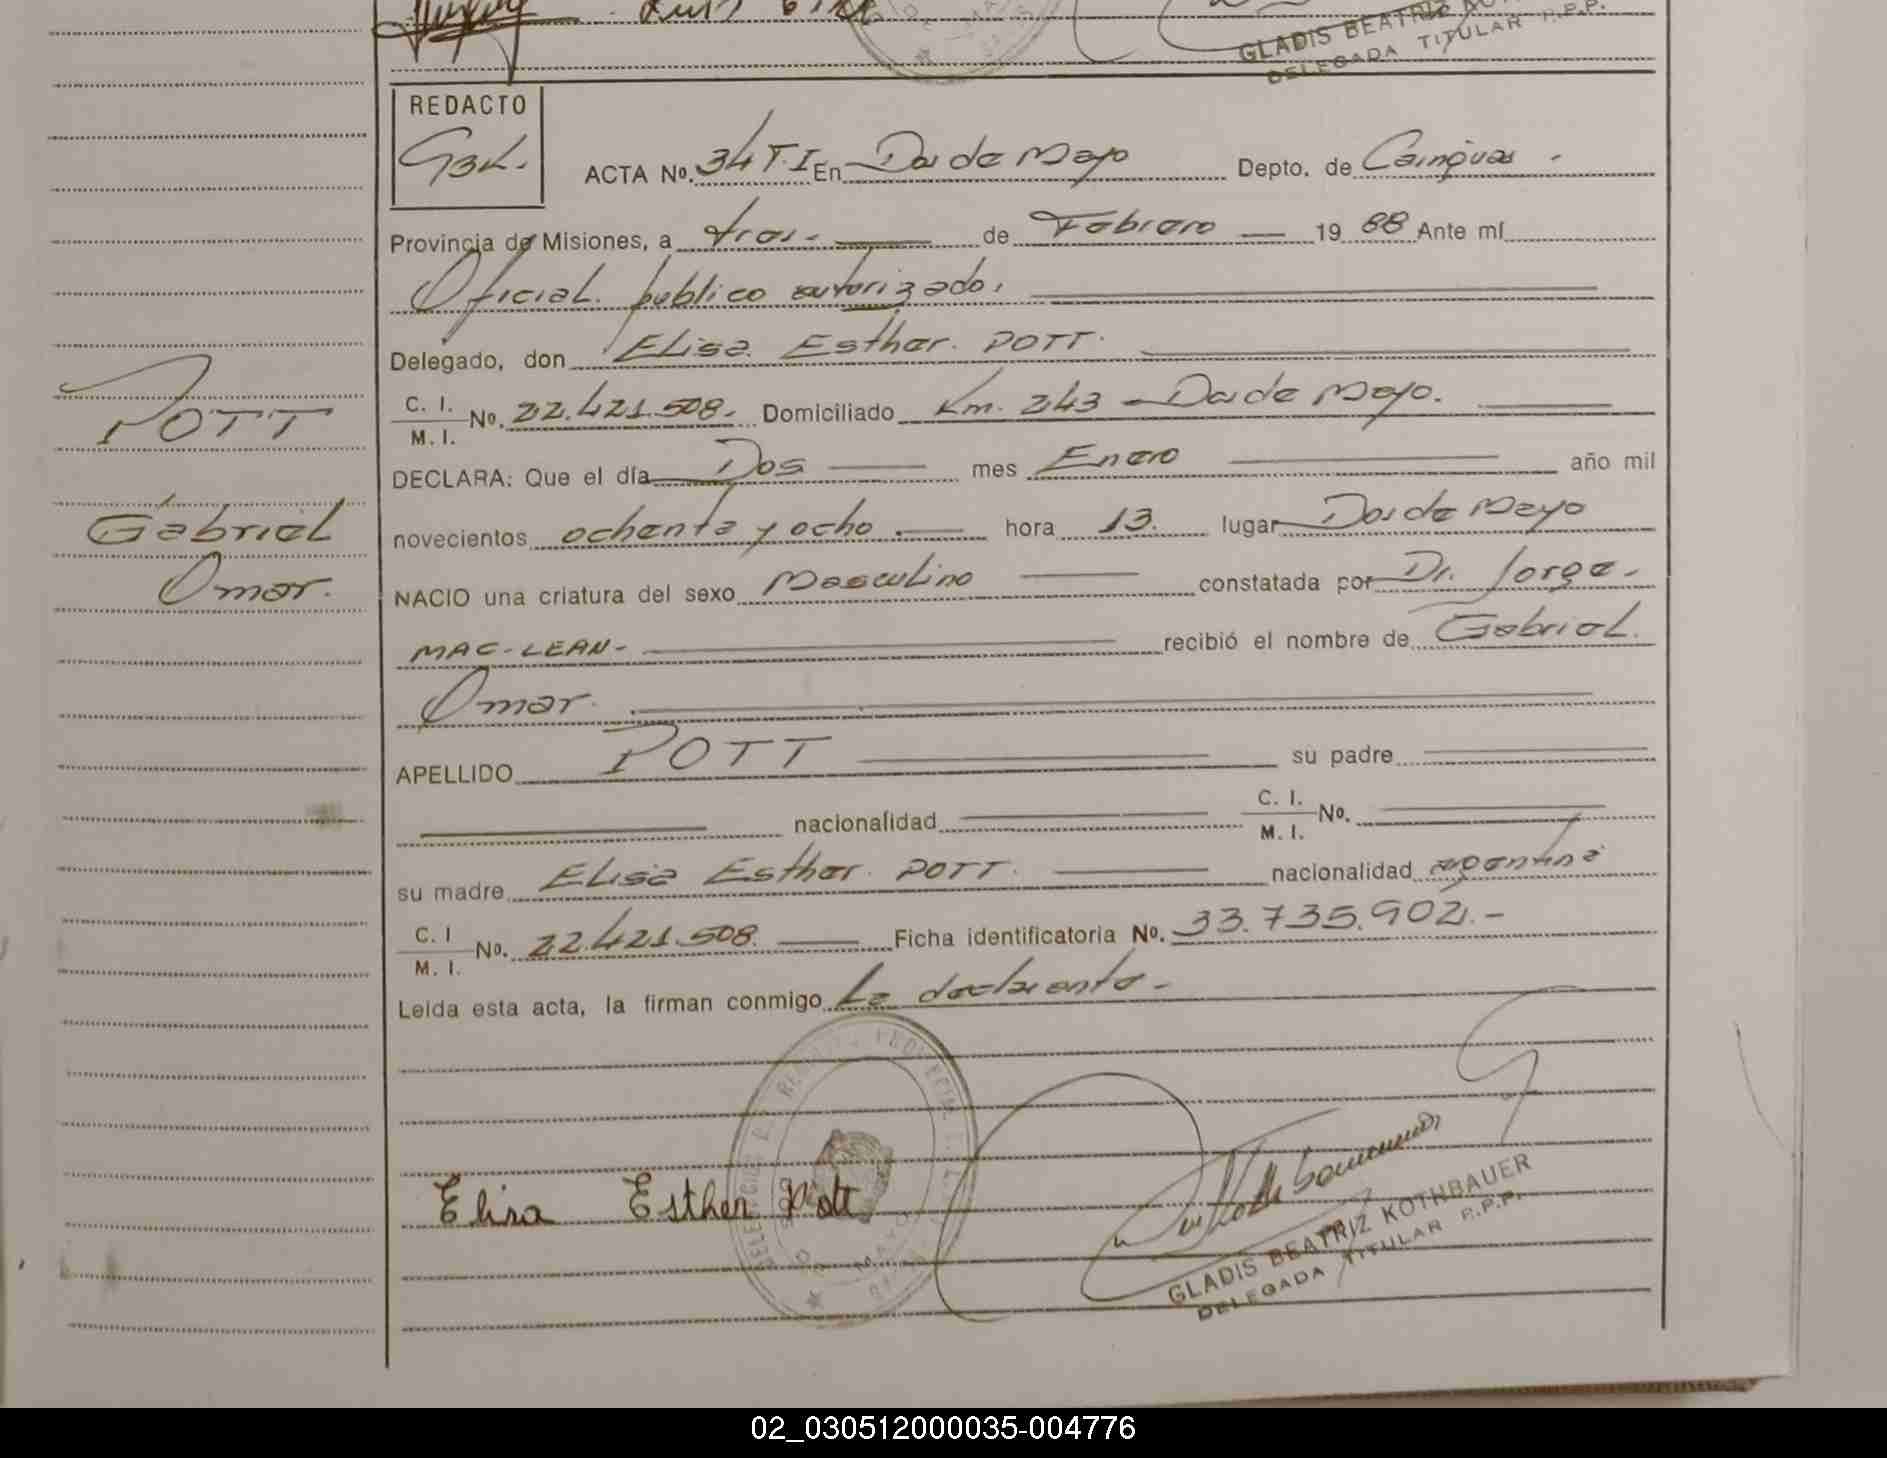 GLADIS BEATRIZ
DELEGADA TITULAR P.P.P.
REDACTO
GBK.
ACTA No. 34 T. I En Dos de Mayo Depto. de Cainguas.
Provincia de Misiones, a tres.- de Febrero 19 88 Ante mí
Oficial público autorizado.
Delegado, don Elisa Esther. POTT.
C. I. / M. I. No. 22.421.508. Domiciliado Km. 243 - Dos de Mayo.
DECLARA: Que el día Dos mes Enero año mil
novecientos ochenta y ocho.- hora 13. lugar Dos de Mayo
NACIO una criatura del sexo Masculino constatada por Dr. Jorge.
MAC-LEAN- recibió el nombre de Gabriel.
Omar.
APELLIDO POTT su padre
nacionalidad C. I. / M. I. No.
su madre Elisa Esther. POTT. nacionalidad argentina
C. I / M. I. No. 22.421.508. Ficha identificatoria No. 33.735.902.-
Leída esta acta, la firman conmigo La declarante.-
POTT
Gabriel
Omar.
Elisa Esther Pott
GLADIS BEATRIZ KOTHBAUER
DELEGADA TITULAR P.P.P.
02_030512000035-004776